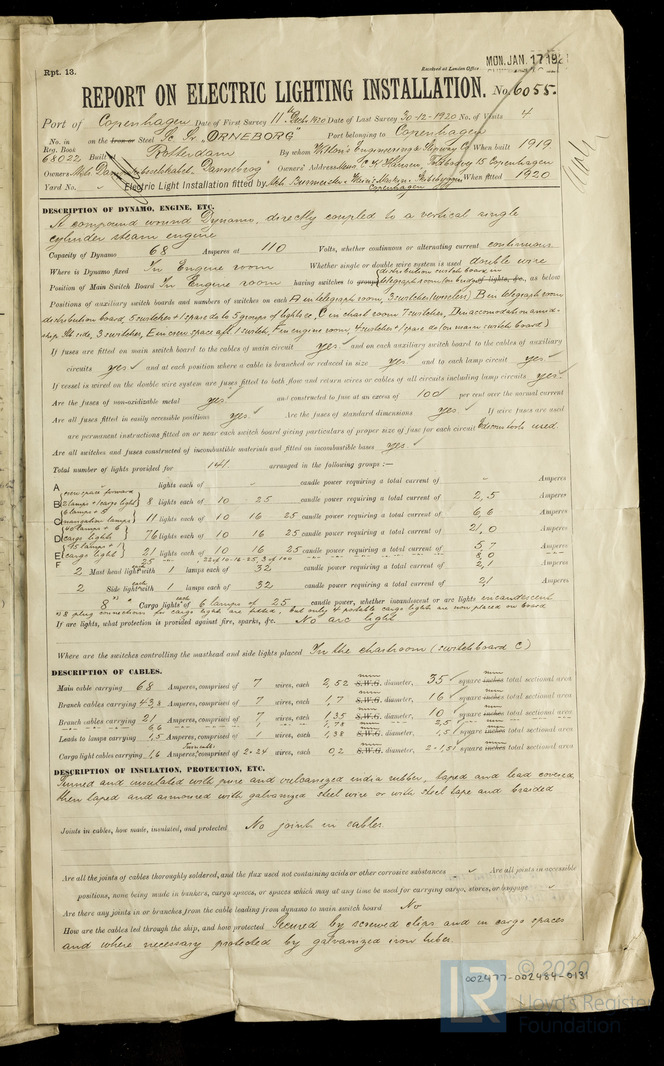 Rpt. 13.
Received at London Office MON. JAN. 17 192
REPORT ON ELECTRIC LIGHTING INSTALLATION. No. 6055.
Port of Copenhagen Date of First Survey 11th 1920 Date of Last Survey 30-12-1920 No. of Visits 4
No. in on the Iron or Steel Sc. Sr. "ORNEBORG" Port belonging to Copenhagen
Reg. Book
68022 Built at Rotterdam By whom Wilton's Engineering & Slipway Co. When built 1919
Owners Owners' Address 15 Copenhagen
Yard No. Electric Light Installation fitted by Burmeister & When fitted 1920
Copenhagen
DESCRIPTION OF DYNAMO, ENGINE, ETC.
A compound wound Dynamo, directly coupled to a vertical single
cylinder steam engine
Capacity of Dynamo 68 Amperes at 110 Volts, whether continuous or alternating current continuous
Where is Dynamo fixed In Engine room Whether single or double wire system is used double wire
distribution switch board in
Position of Main Switch Board In Engine room having switches to groups telegraph room of lights, &c., as below
Positions of auxiliary switch boards and numbers of switches on each A in telegraph room, 3 switches (wireless) B in telegraph room
distribution board, 5 switches + 1 spare do to 5 groups of lights &c. C in chart room 7 switches, D in accomodation amid-
ship St side, 3 switches, E in crew space aft 1 switch, F in engine room, 4 switches + 1 spare do (on main switch board)
If fuses are fitted on main switch board to the cables of main circuit yes and on each auxiliary switch board to the cables of auxiliary
circuits yes and at each position where a cable is branched or reduced in size yes and to each lamp circuit yes
If vessel is wired on the double wire system are fuses fitted to both flow and return wires or cables of all circuits including lamp circuits yes
Are the fuses of non-oxidizable metal yes and constructed to fuse at an excess of 100 per cent over the normal current
Are all fuses fitted in easily accessible positions yes Are the fuses of standard dimensions yes If wire fuses are used
are permanent instructions fitted on or near each switch board giving particulars of proper size of fuse for each circuit used
Are all switches and fuses constructed of incombustible materials and fitted on incombustible bases yes
Total number of lights provided for 141 arranged in the following groups :—
A lights each of candle power requiring a total current of Amperes
crew space forward
2 lamps + 1 cargo light
B 8 lights each of 10 25 candle power requiring a total current of 2,5 Amperes
6 lamps + 5
navigation lamps
C 11 lights each of 10 16 25 candle power requiring a total current of 6,6 Amperes
cargo lights
D 76 lights each of 10 16 25 candle power requiring a total current of 21,0 Amperes
15 lamps + 1
cargo light
E 21 lights each of 10 16 25 candle power requiring a total current of 5,7 Amperes
F 25 8,0
2 Mast head light with 1 lamps each of 32 candle power requiring a total current of 2,1 Amperes
2 Side light with 1 lamps each of 32 candle power requiring a total current of 2,1 Amperes
8 Cargo lights of each 6 lamps of 25 candle power, whether incandescent or arc lights incandescent
8 plug connections for cargo light are fitted, but only 4 portable cargo lights are now placed on board
If arc lights, what protection is provided against fire, sparks, &c. No arc light
Where are the switches controlling the masthead and side lights placed In the chartroom (switchboard C)
DESCRIPTION OF CABLES.
Main cable carrying 68 Amperes, comprised of 7 wires, each 2,52 S.W.G. mm diameter, 35 square inches mm total sectional area
Branch cables carrying 43,8 Amperes, comprised of 7 wires, each 1,7 S.W.G. mm diameter, 16 square inches mm total sectional area
Branch cables carrying 21 Amperes, comprised of 7 wires, each 1,35 S.W.G. mm diameter, 10 square inches mm total sectional area
6,6 1 1,78 2,5
Leads to lamps carrying 1,5 Amperes, comprised of 1 wires, each 1,38 S.W.G. mm diameter, 1,5 square inches mm total sectional area
Cargo light cables carrying 1,6 Amperes, comprised of 2·24 wires, each 0,2 S.W.G. mm diameter, 2·1,5 square inches mm total sectional area
DESCRIPTION OF INSULATION, PROTECTION, ETC.
Tinned and insulated with pure and vulcanized india rubber, taped and lead covered
then taped and armoured with galvanized steel wire or with steel tape and braided
Joints in cables, how made, insulated, and protected No joint in cables
Are all the joints of cables thoroughly soldered, and the flux used not containing acids or other corrosive substances Are all joints in accessible
positions, none being made in bunkers, cargo spaces, or spaces which may at any time be used for carrying cargo, stores, or baggage
Are there any joints in or branches from the cable leading from dynamo to main switch board No
How are the cables led through the ship, and how protected Secured by screwed clips and in cargo spaces
and where necessary protected by galvanized iron tubes.
© 2020
002477-002484-0131
LR
Lloyd's Register
Foundation